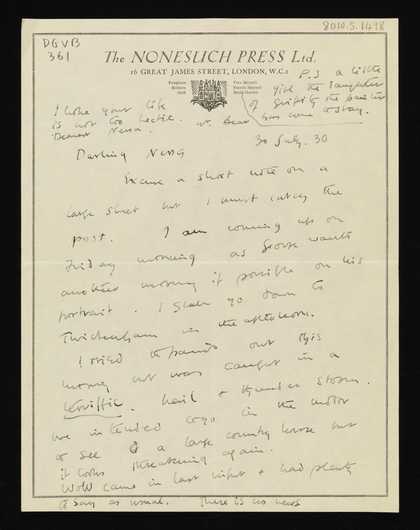 8010.5.1498
DGVB
361
The NONESUCH PRESS Ltd.
16 GREAT JAMES STREET, LONDON, W.C.1
P.S a little
girl the daughter
of the
has come to stay.
I hope your life
is not too hectic.
Dearest Nessa.
30 July. 30
Darling Nessa
Excuse a short note on a
large sheet but I must catch the
post. I am coming up on
Friday morning as George wants
another morning if possible on his
portrait. I shall go down to
Twickenham in the afternoon.
I tried to paint out this
morning but was caught in a
terrific hail & thunder storm.
We intended to go in the motor
to see a large country house but
it looks threatening again.
came in last night & had plenty
to say as usual. There is no news